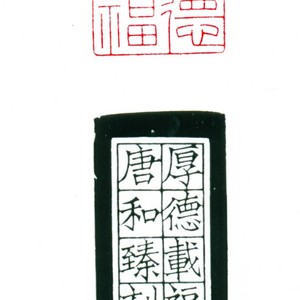 德福
厚德載福
唐和臻刻